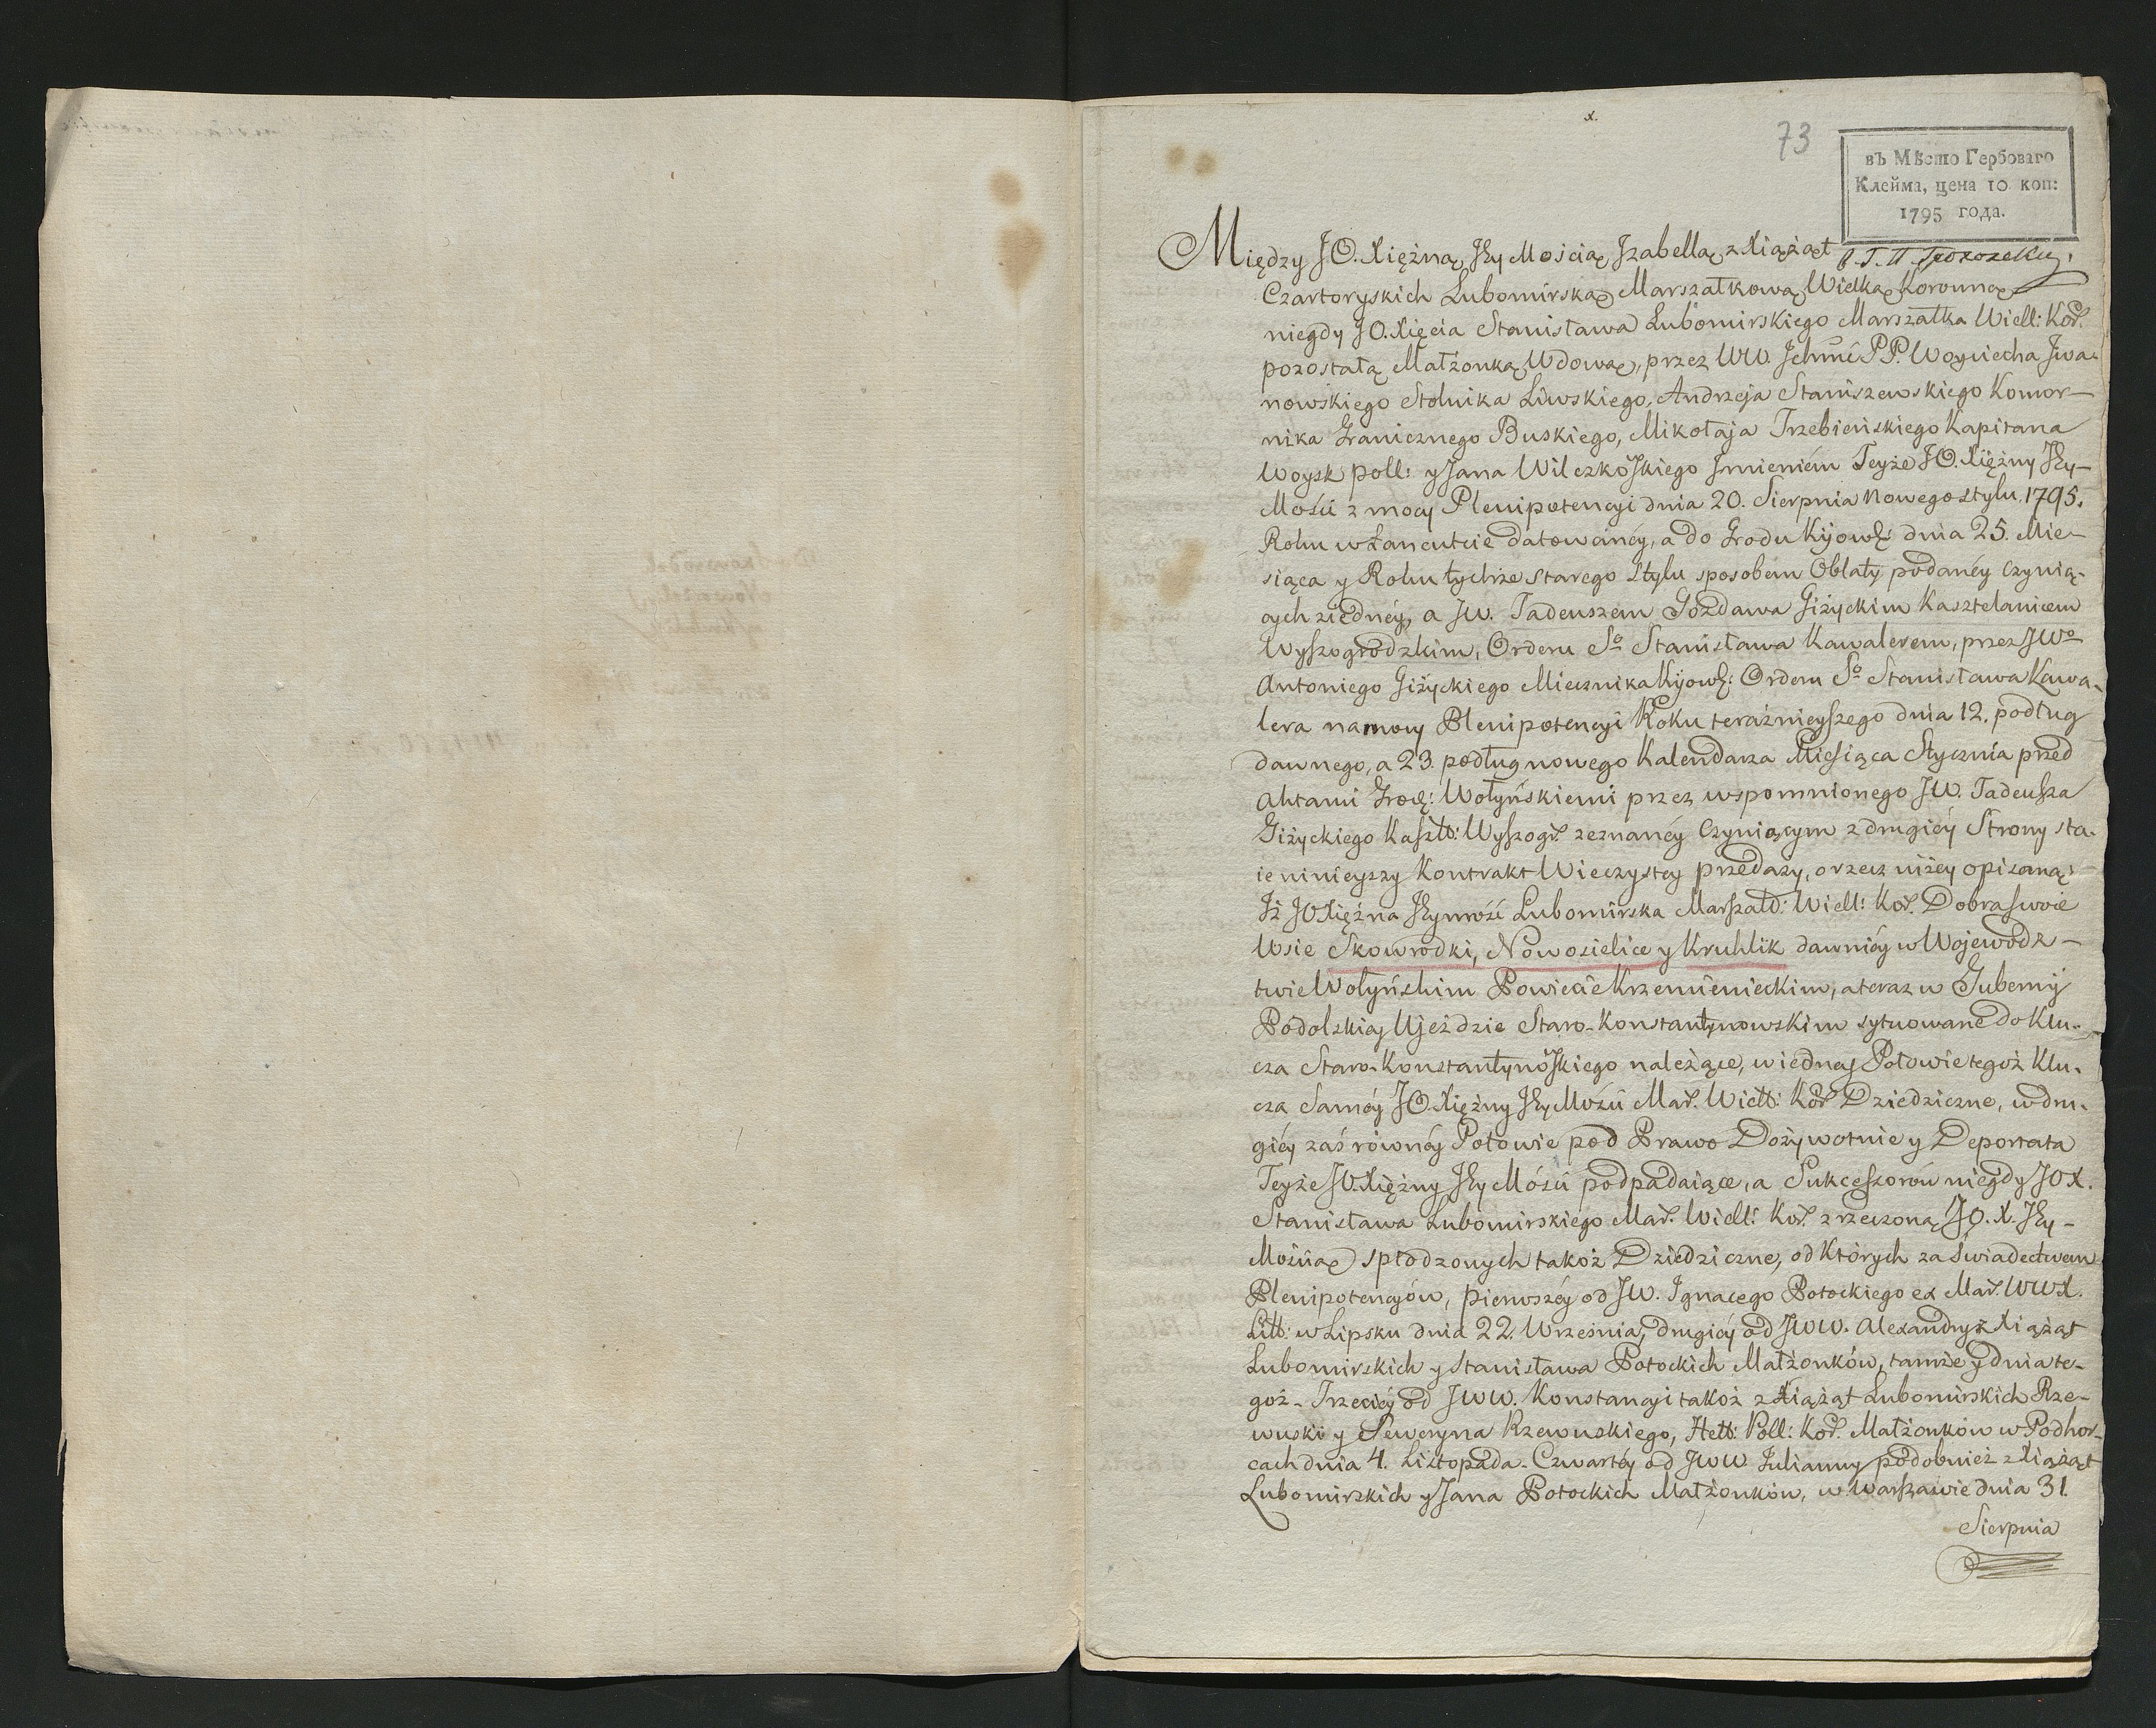 x.
73
въ Мѣсто Гербоваго
Клейма, цена 10 коп:
1795 года.
Między JO. Xiężną Jey Mością Izabellą z Xiążąt
Czartoryskich Lubomirską Marszałkową Wielką Koronną
niegdy JO. Xięcia Stanisława Lubomirskiego Marszałka Wiell: Kor.
pozostałą Małżonką Wdową, przez WW. Jchmć PP. Woyciecha Jwa-
nowskiego Stolnika Liwskiego, Andrzeja Staniszewskiego Komor-
nika Granicznego Buskiego, Mikołaja Trzebieńskiego Kapitana
Woysk poll: y Jana Wilczkoskiego Jmieniem Teyże JO. Xiężny Jey-
Mości z mocy Plenipotencyi dnia 20. Sierpnia Nowego stylu 1795.
Roku w Łancutcie datowanéy, a do Grodu Kijowſ: dnia 25. Mie-
siąca y Roku tychże starego Stylu sposobem Oblaty podanéy Czynią-
cych z iednéy, a JW. Tadeuszem Gozdawa Giżyckim Kasztelanicem
Wyſzogrodzkim, Orderu So Stanisława Kawalerem, przez JWo
Antoniego Giżyckiego Miecznika Kijowſ: Orderu So Stanisława Kawa-
lera na mocy Plenipotencyi Roku teraźnieyſzego dnia 12. podług
dawnego, a 23. podług nowego Kalendarza Mieſiąca Stycznia przed
Aktami Grodz: Wołyńskiemi przez wspomnionego JW. Tadeuſza
Giżyckiego Kaſztl: Wyſzogr. zeznanéy Czyniącym z drugiéy Strony sta-
ie ninieyszy Kontrakt Wieczystey przedaży, o rzecz niżey opisaną:
Iż JO Xiężna Jeymość Lubomirska Marſzałk: Wiell: Kor. Dobra swoie
Wsie Skowrodki, Nowosielice y Kruhlik dawniéy w Wojewodz-
twie Wołyńskim Powiecie Krzemienieckim, a teraz w Gubernij
Podolskiej Ujeździe Staro-Konstantynowskim sytuowane do Klu-
cza Staro-Konstantynoſkiego należące, w iedney Połowie tegoż Klu-
cza Saméy JO. Xiężny Jey Mości Mar. Wiell: Kor. Dziedziczne, w dru-
giéy zaś równéy Połowie pod Prawo Dożywotnie y Deportata
Teyże JO. Xiężny Jey Mości podpadaiące, a Sukceſzorów niegdy JOX.
Stanisława Lubomirskiego Mar. Wiell: Kor. z rzeczoną JO. X. Jey-
Mością spłodzonych takoż Dziedziczne, od których za świadectwem
Plenipotencyów, pierwszéy od JW. Ignacego Potockiego ex Mar. WWX.
Litt: w Lipsku dnia 22. Września, drugiéy od JWW. Alexandry z Xiążąt
Lubomirskich y Stanisława Potockich Małżonków, tamże y dnia te-
goż- Trzeciéy od JWW. Konstancyi takoż z Xiążąt Lubomirskich Rze-
wuski y Seweryna Rzewuskiego, Hett: Poll: Kor. Małżonków w Podhor-
cach dnia 4. Listopada- Czwartéy od JWW Julianny podobnież z Xiążąt
Lubomirskich y Jana Potockich Małżonków, w Warſzawie dnia 31.
Sierpnia